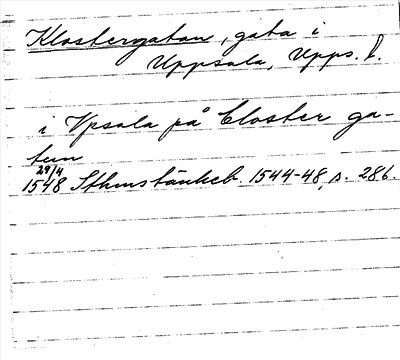 Klostergatan, gata i
Uppsala, Upps. l.
i Vpsala på Closter ga-
tun
29/4
1548 Sthmstänkeb. 1544-48, s. 286.